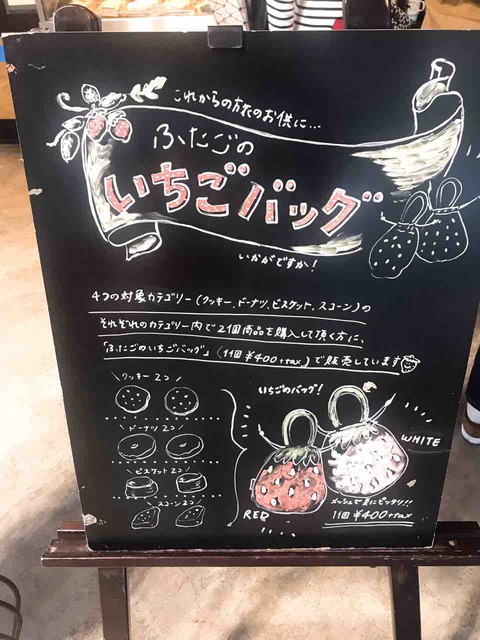 これからの旅のお供に…
ふたごの
いちごバッグ
いかがですか!
4つの対象カテゴリー(クッキー、ドーナツ、ビスケット、スコーン)の
それぞれのカテゴリー内で2個商品を購入して頂く方に、
「ふたごのいちごバッグ」(1個¥400+tax)で販売しています
クッキー 2コ
ドーナツ 2コ
ビスケット 2コ
スコーン 2コ
いちごのバッグ!
WHITE
RED
メッシュで夏にピッタリ!!
1個¥400+tax